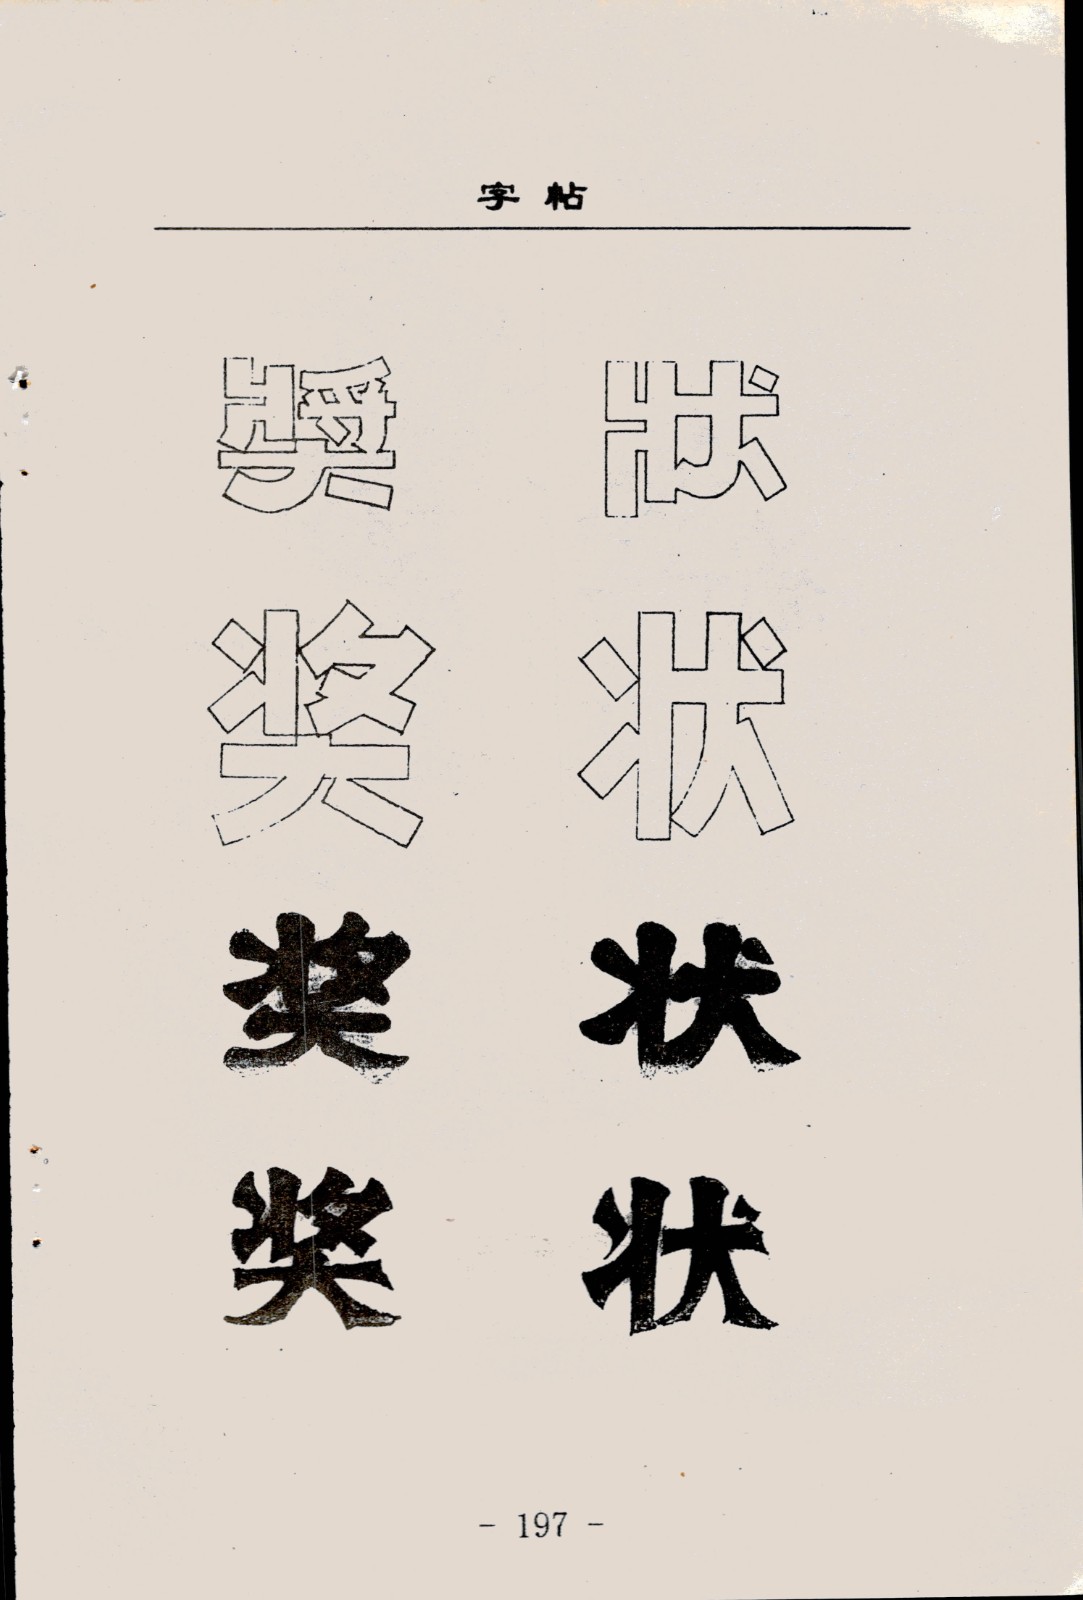 字帖
奬 狀
奖 状
奖 状
奖 状
- 197 -